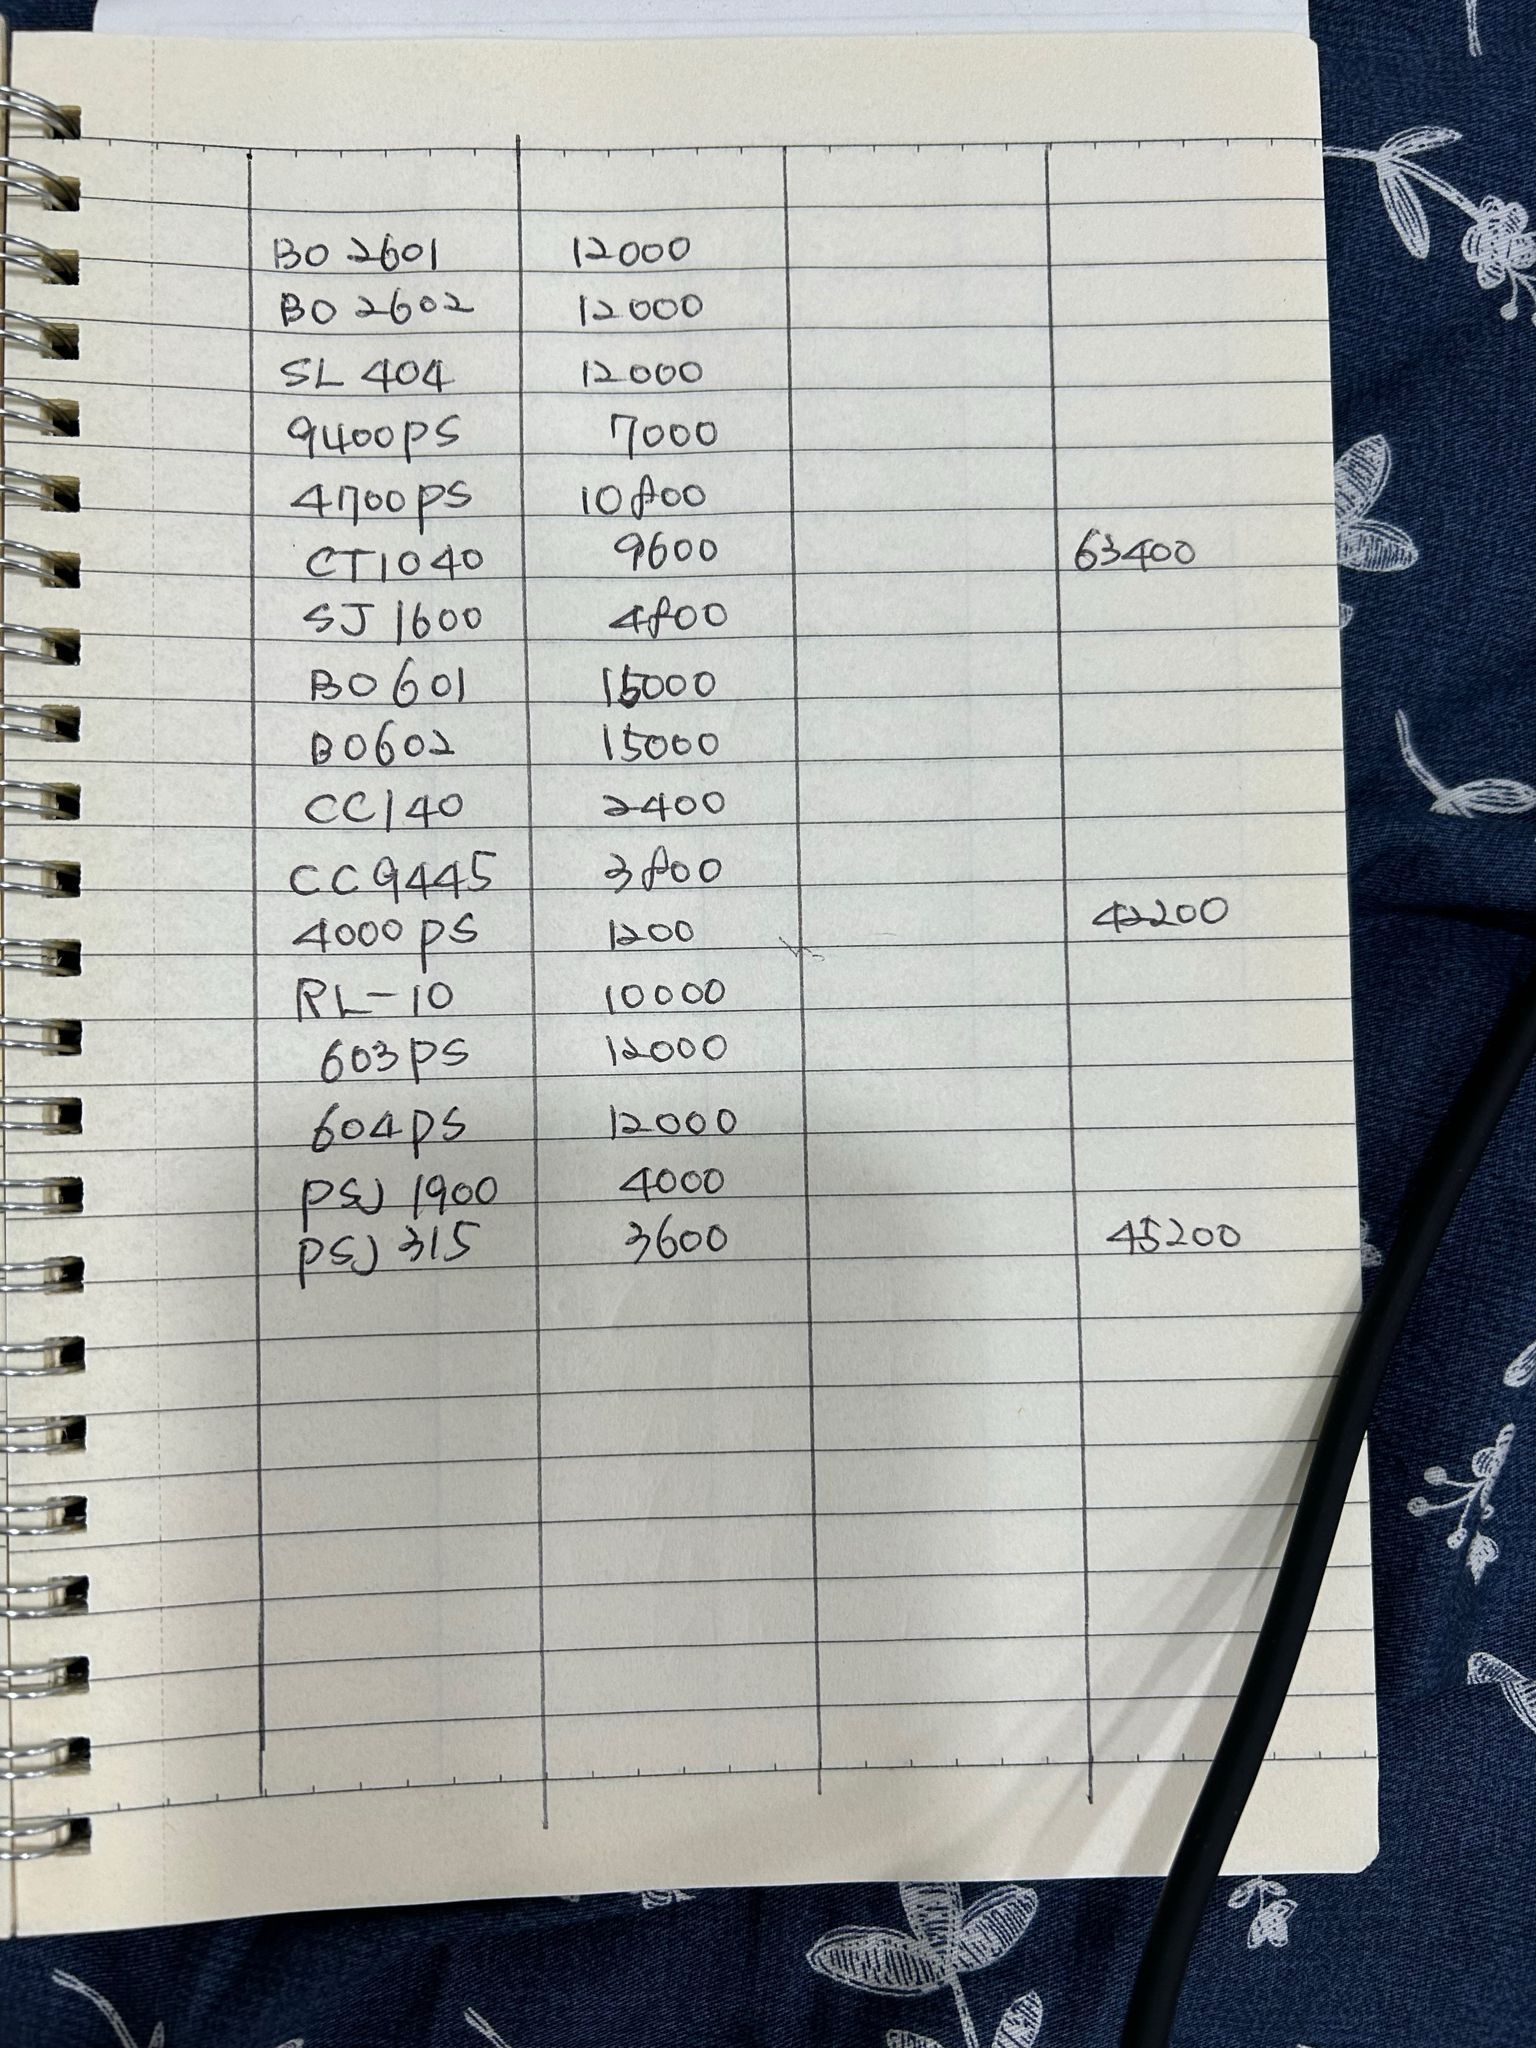 BO 2601 12000
BO 2602 12000
SL 404 12000
9400PS 7000
4700PS 10800
CT1040 9600 63400
SJ 1600 4800
BO 601 15000
BO602 15000
CC140 2400
CC9445 3800
4000PS 1200 42200
RL-10 10000
603PS 12000
604PS 12000
PSJ 1900 4000
PSJ 315 3600 45200